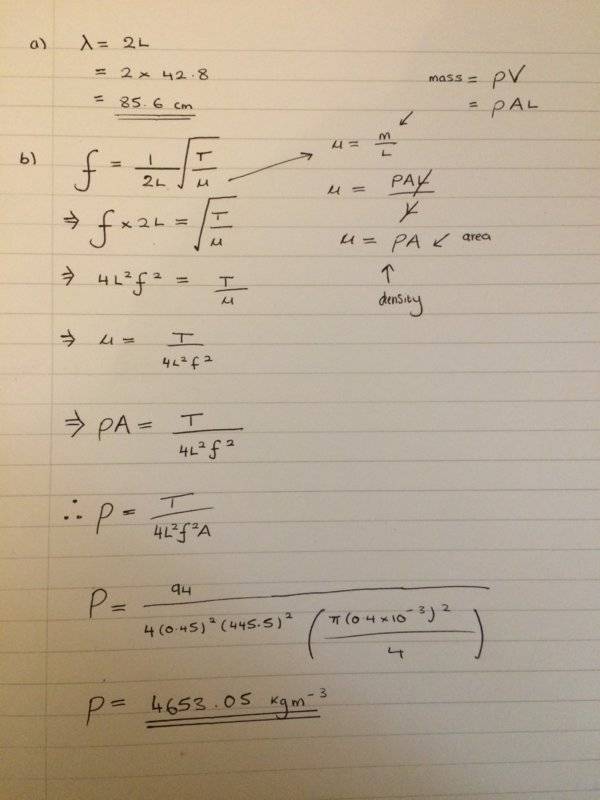 a) λ = 2L
= 2 × 42.8
= 85.6 cm
mass = ρV
= ρAL
b) f = 1/2L √(T/μ)
μ = m/L
⇒ f × 2L = √(T/μ)
μ = ρAL/L
μ = ρA ↙ area
↑
density
⇒ 4L²f² = T/μ
⇒ μ = T/4L²f²
⇒ ρA = T/4L²f²
∴ ρ = T/4L²f²A
ρ = 94/4(0.45)²(445.5)² (π(0.4×10⁻³)²/4)
ρ = 4653.05 kgm⁻³